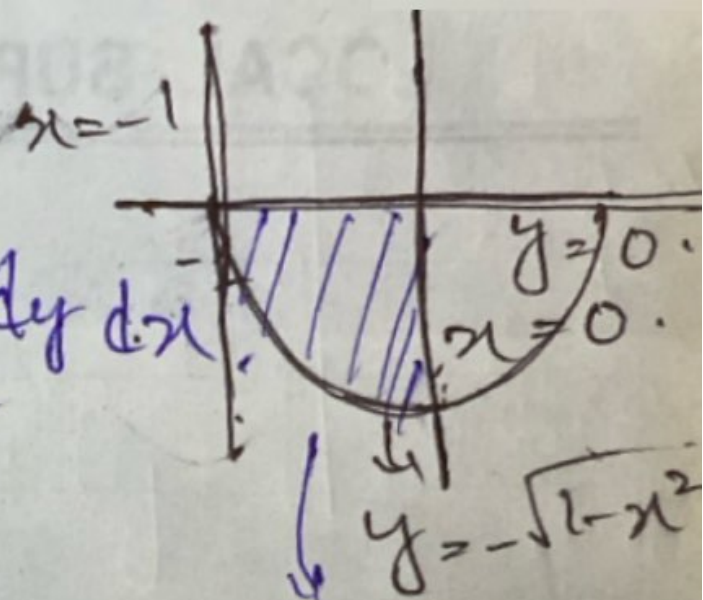 x=-1
y=0.
dy dx
x=0.
y=-√1-x²